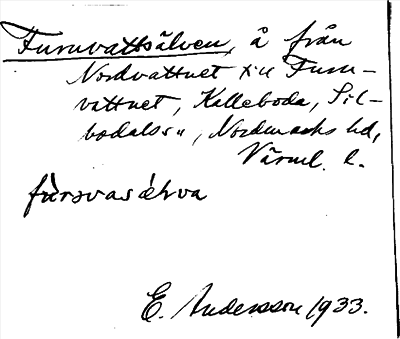 Furuvattsälven, å från
Nordvattnet till Furu-
vattnet, Kalleboda, Sil-
bodals sn, Nordmarks hd,
Värml. l.
fùrəvasǽlva
E. Andersson 1933.